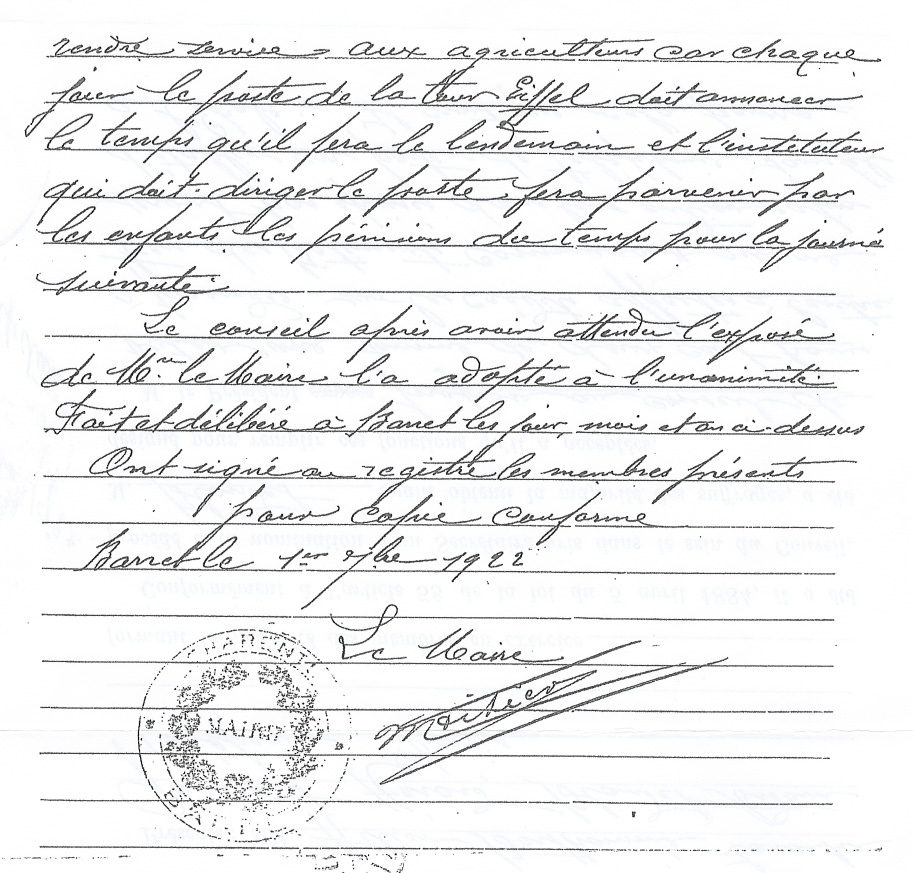 rendre service aux agriculteurs car chaque
jour le poste de la tour Eiffel doit annoncer
le temps qu'il fera le lendemain et l'instituteur
qui doit diriger le poste fera parvenir par
les enfants les prévisions du temps pour la journé
suivante.
Le conseil après avoir attendu l'exposé
de Mr. le Maire l'a adopté à l'unanimité.
Fait et délibéré à Barret les jour mois et an ci-dessus
Ont signé au registre les membres présents
pour copie conforme
Barret le 1er 7bre 1922
Le Maire
CHARENTE
MAIRIE